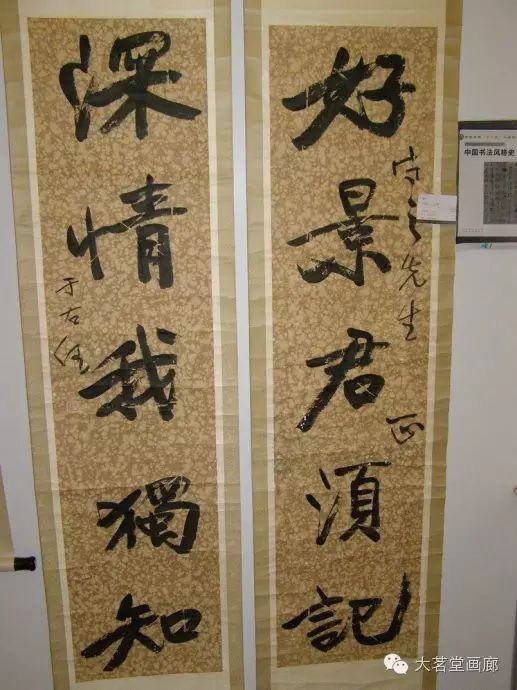 好景君須記
守之先生 正
深情我獨知
于右任
中国书法风格史
大茗堂画廊